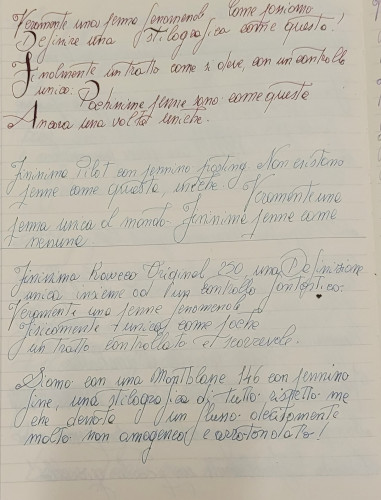 Veramente una penna fenomenale Come possiamo
Definire una Stilografica come questa!
Finalmente un tratto come si deve, con un controllo
unico: Pochissime penne sono come queste
Ancora una volta uniche.
Finissimo Pilot con pennino posting Non esistono
penne come questa uniche. Veramente una
penna unica al mondo Finissime penne come
nessuna.
Finissima Kaweco Original 250 una Definizione
unica insieme ad un controllo fantastico.
Veramente una penna fenomenale
come poche
un tratto controllato e scorrevole.
Siamo con una Montblanc 146 con pennino
fine, una stilografica di tutto rispetto ma
che denota un flusso decisamente
molto non omogeneo e arrotondato!